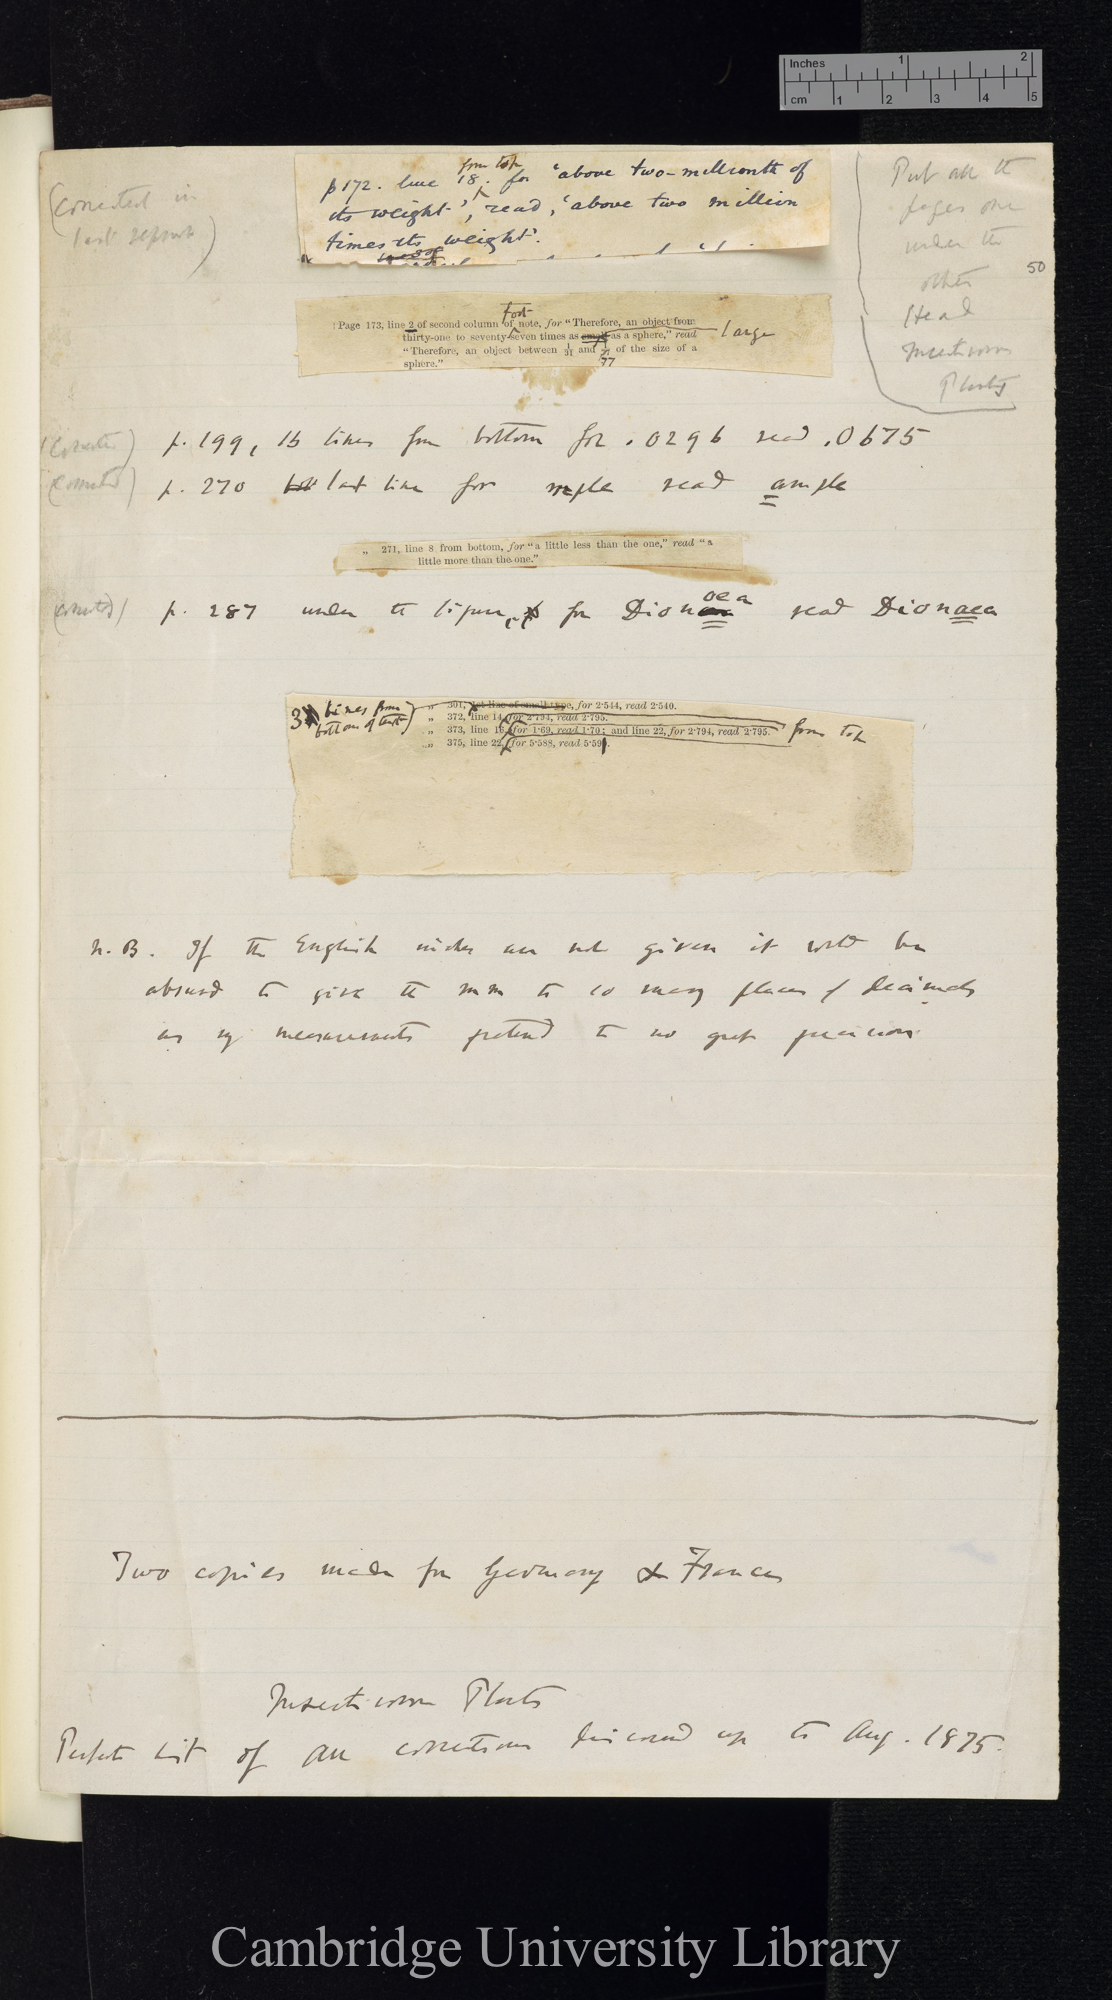 Inches 1 2
cm 1 2 3 4 5
(Corrected in
last reprint)
from top
p 172. line 18; for 'above two-millionth of
its weight', read, 'above two million
times its weight'.
Put all the
pages one
under the
other
Head
Insectivorous
Plants
50
Foot
Page 173, line 2 of second column of note, for "Therefore, an object from
thirty-one to seventy-seven times as small as a sphere," read large
"Therefore, an object between 1/31 and 1/77 of the size of a
sphere."
77
(Corrected) p. 199, 15 lines from bottom for .0296 read .0675
(Corrected) p. 270 last line for mple read ample
„ 271, line 8 from bottom, for "a little less than the one," read "a
little more than the one."
oea
(corrected) p. 287 under the figure, for Dion read Dionaea
3 lines from
bottom of text)
„ 301, 1st line of small type, for 2·544, read 2·540.
„ 372, line 14, for 2·794, read 2·795.
„ 373, line 16, for 1·69, read 1·70; and line 22, for 2·794, read 2·795. from top
„ 375, line 22, for 5·588, read 5·59
N.B. If the English inches are not given it wld be
absurd to give the mm to so many places of decimals
as my measurements pretend to no great precision
Two copies made for Germany & France
Insectivorous Plants
Perfect list of all corrections discovered up to Aug. 1875.
Cambridge University Library